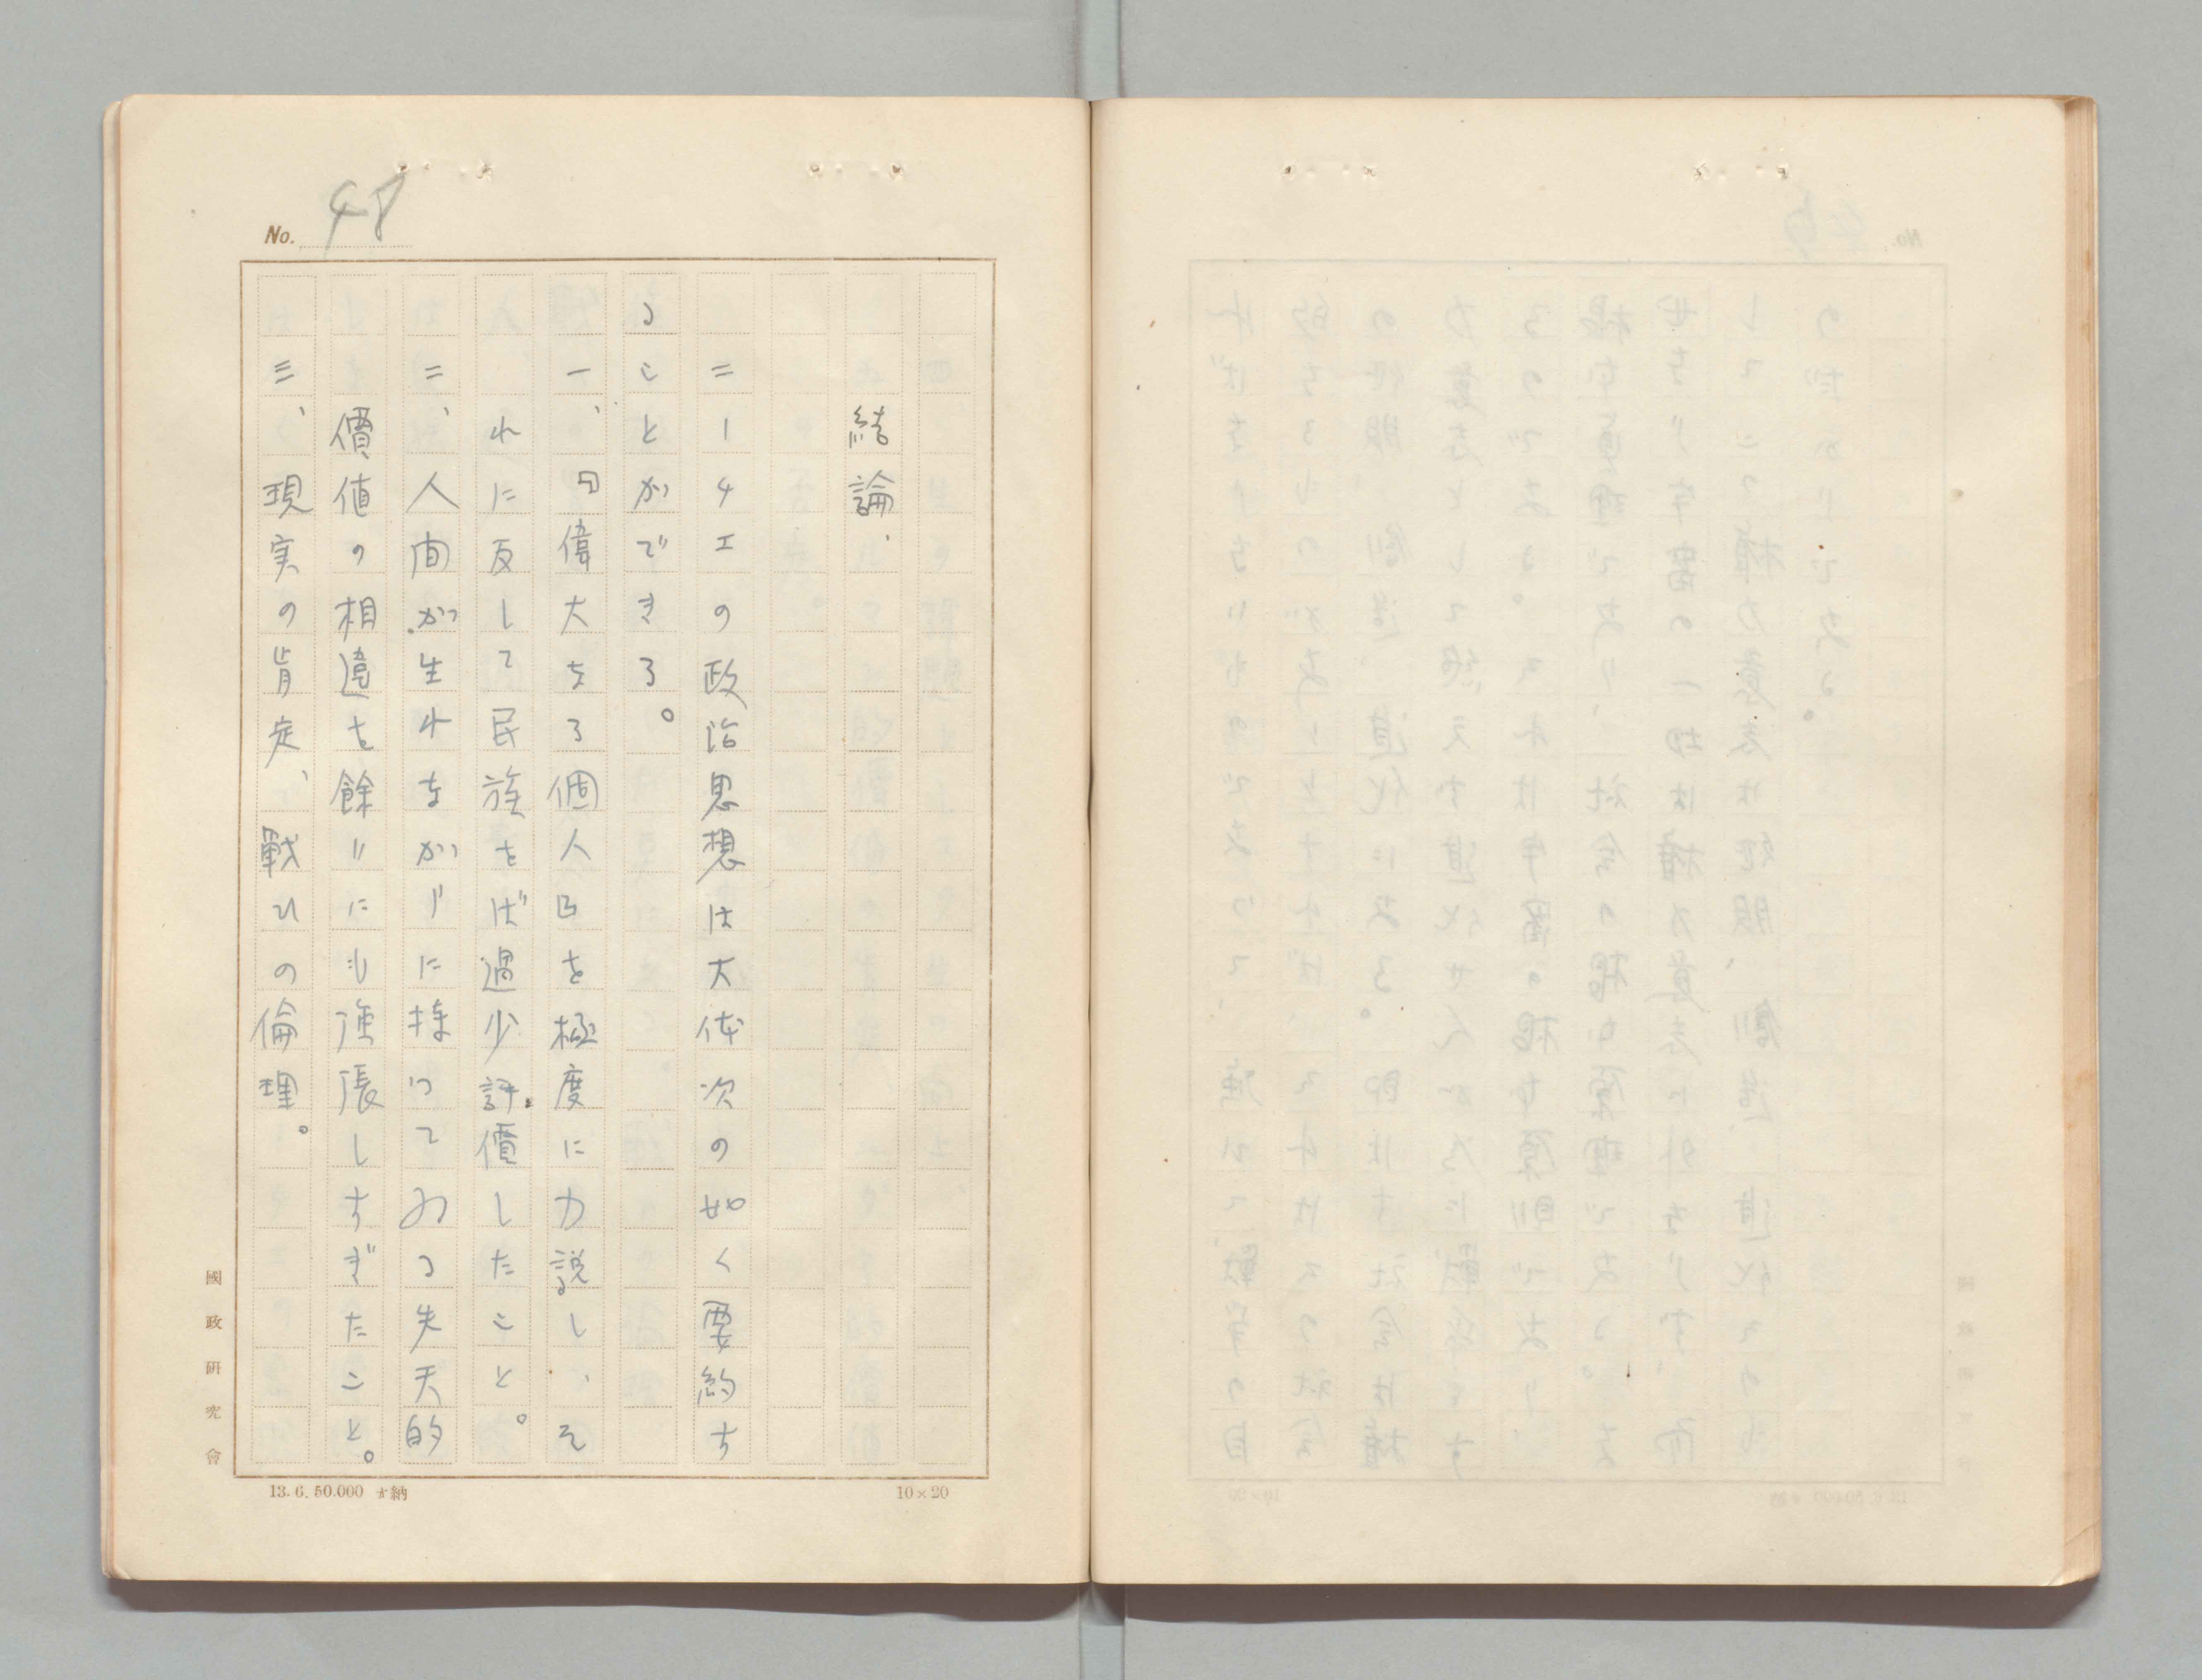 No. 48
結論、
ニーチエの政治思想は大体次の如く要約す
ることができる。
一、『偉大なる個人』を極度に力説し、そ
れに反して民族をば過少評價したこと。
二、人間が生れながらに持つてゐる先天的
價値の相違を餘りにも強張しすぎたこと。
三、現実の肯定、戦ひの倫理。
國政研究會
13. 6. 50.000 納
10×20